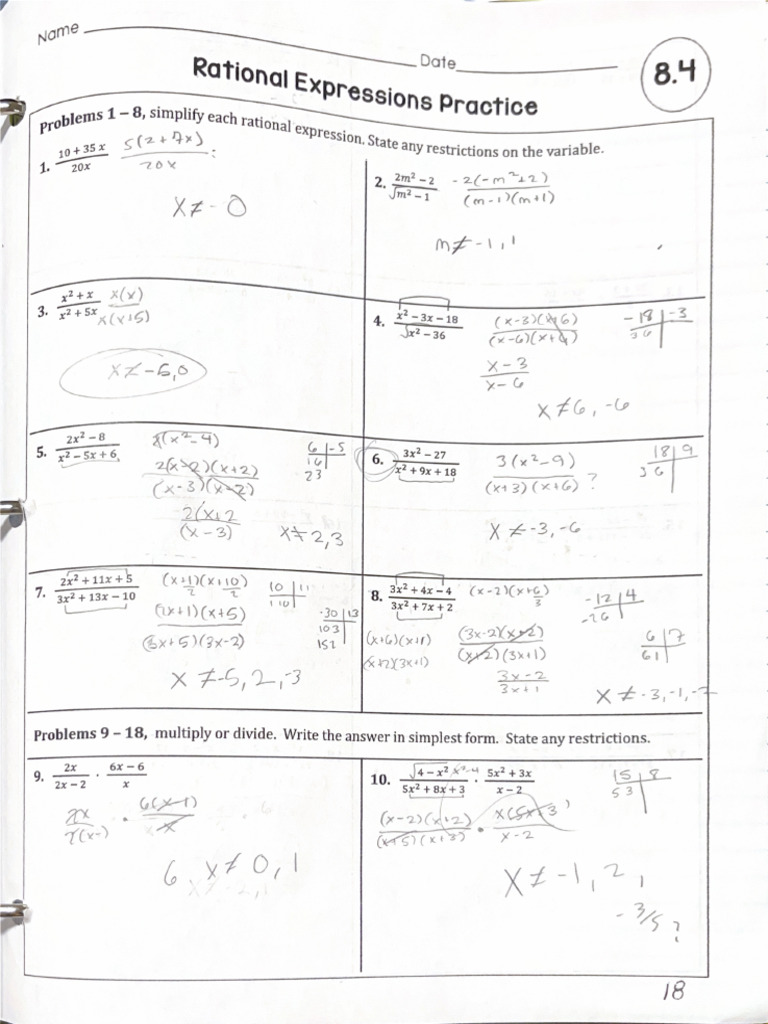 Name
Date
Rational Expressions Practice
8.4
Problems 1 – 8, simplify each rational expression. State any restrictions on the variable.
1. (10 + 35x)/(20x) 5(2 + 7x)/20x :
x ≠ 0
2. (2m² – 2)/(m² – 1) -2(-m²+2)/(m-1)(m+1)
m ≠ -1, 1
3. (x² + x)/(x² + 5x) x(x)/x(x+5)
x ≠ -5,0
4. (x² – 3x – 18)/(x² – 36) (x-3)(x+6)/(x-6)(x+6) -18 | -3
36
x-3/x-6
x ≠ 6, -6
5. (2x² – 8)/(x² – 5x + 6) (x²-4) 6 | -5
16
23
2(x-2)(x+2)/(x-3)(x-2)
2(x+2/(x-3) x ≠ 2,3
6. (3x² – 27)/(x² + 9x + 18) 3(x²-9)/(x+3)(x+6) ? 18 | 9
36
x ≠ -3, -6
7. (2x² + 11x + 5)/(3x² + 13x – 10) (x+1)(x+10) 10 | 11
2 2
1 10
(2x+1)(x+5)/(3x+5)(3x-2) -30 | 13
10 3
15 2
x ≠ -5, 2, -3
8. (3x² + 4x – 4)/(3x² + 7x + 2) (x-2)(x+6) -12 | 4
3
-26
(x+6)(x+1) (3x-2)(x+2)/(x+2)(3x+1) 6 | 7
(x+2)(3x+1) 61
3x-2/3x+1
x ≠ -3, -1, -2
Problems 9 – 18, multiply or divide. Write the answer in simplest form. State any restrictions.
9. 2x/(2x – 2) · (6x – 6)/x
2x/2(x-) • 6(x-1)/x
6 x ≠ 0, 1
10. (4 – x²)/(5x² + 8x + 3) · (5x² + 3x)/(x – 2) x²-4 15 | 8
53
(x-2)(x+2)/(x+5)(x+3) • x(5x+3)/x-2
x ≠ -1, 2,
-3/5 ?
18